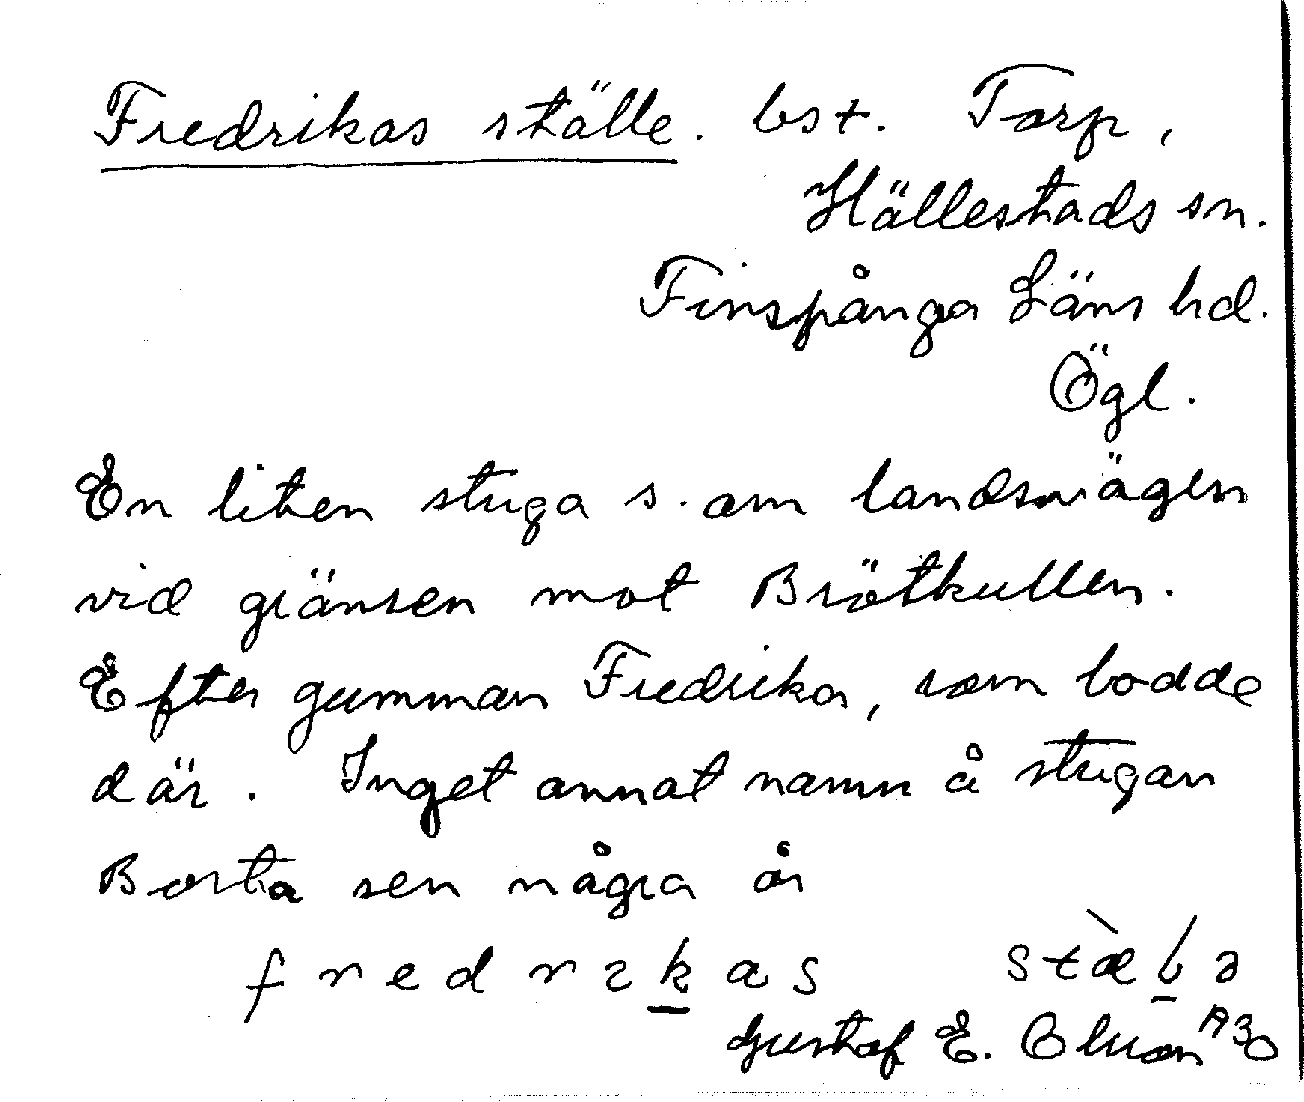 Fredrikas ställe. bst. Torp,
Hällestads sn.
Finspånga Läns hd.
Ögl.
En liten stuga s. om landsvägen
vid gränsen mot Brötkullen.
Efter gumman Fredrika, som bodde
där. Inget annat namn å stugan
Borta sen några år
Gustaf E.